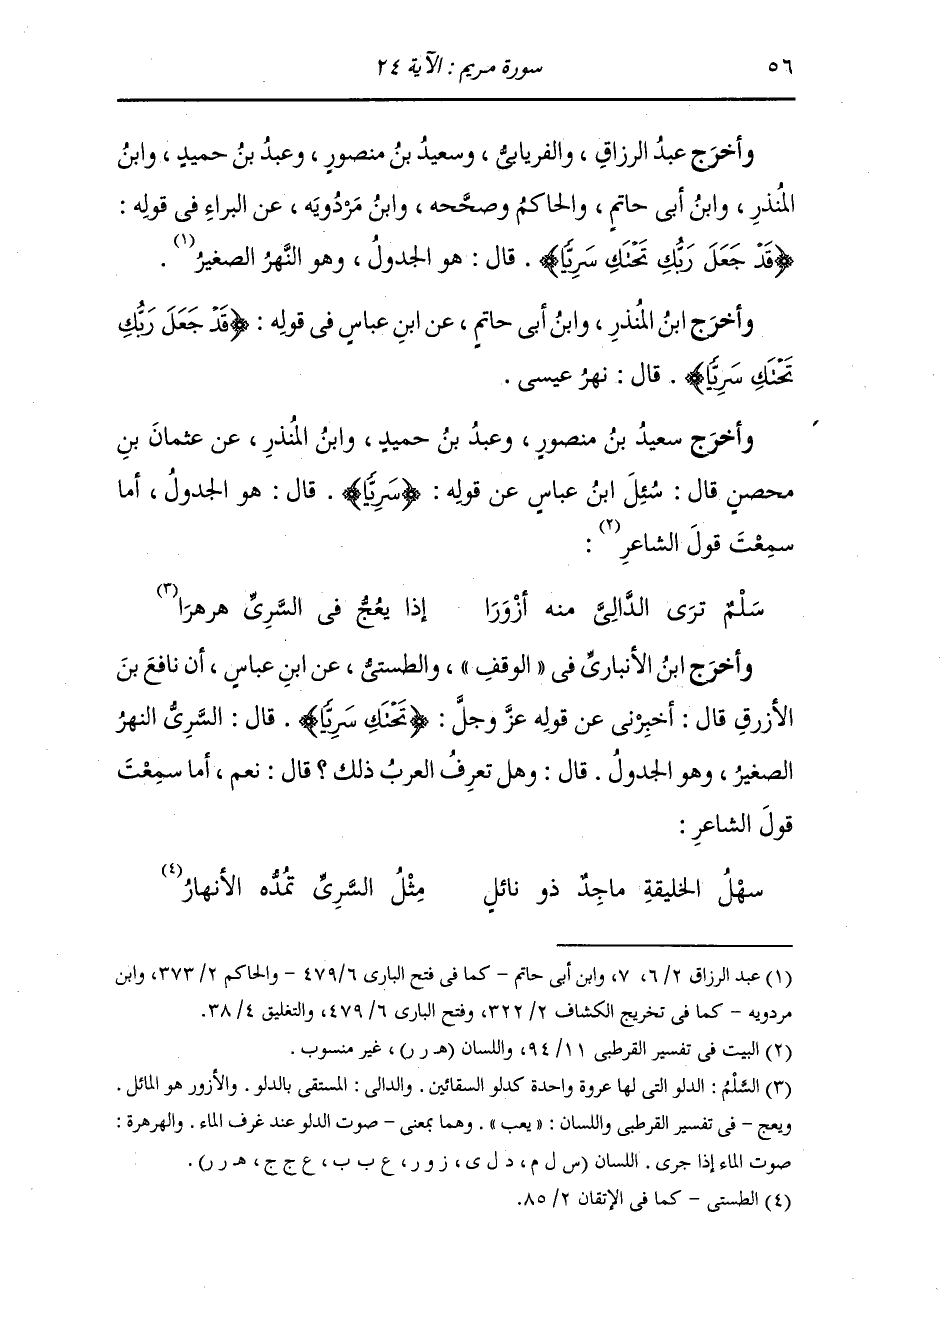 ٥٦ سورة مريم : الآية ٢٤
وأخرَج عبدُ الرزاقِ ، والفريابىُّ ، وسعيدُ بنُ منصورٍ ، وعبدُ بنُ حميدٍ ، وابنُ
المُنذرِ ، وابنُ أبى حاتمٍ ، والحاكمُ وصحَّحه ، وابنُ مَرْدُويَه ، عن البراءِ فى قولِه :
﴿قَدْ جَعَلَ رَبُّكِ تَحْتَكِ سَرِيًّا﴾ . قال : هو الجدولُ ، وهو النَّهرُ الصغيرُ(١) .
وأخرَج ابنُ المُنذرِ ، وابنُ أبى حاتمٍ ، عن ابنِ عباسٍ فى قولِه : ﴿قَدْ جَعَلَ رَبُّكِ
تَحْتَكِ سَرِيًّا﴾ . قال : نهرُ عيسى .
وأخرَج سعيدُ بنُ منصورٍ ، وعبدُ بنُ حميدٍ ، وابنُ المُنذرِ ، عن عثمانَ بنِ
محصنٍ قال : سُئِلَ ابنُ عباسٍ عن قولِه : ﴿سَرِيًّا﴾ . قال : هو الجدولُ ، أما
سمِعْتَ قولَ الشاعرِ(٢) :
سَلْمٌ ترَى الدَّالِىَّ منه أزْوَرَا إذا يعُجُّ فى السَّرِىِّ هرهرَا(٣)
وأخرَج ابنُ الأنبارىِّ فى « الوقفِ » ، والطستىُّ ، عن ابنِ عباسٍ ، أن نافعَ بنَ
الأزرقِ قال : أخبِرْنى عن قولِه عزَّ وجلَّ : ﴿تَحْتَكِ سَرِيًّا﴾ . قال : السَّرِىُّ النهرُ
الصغيرُ ، وهو الجدولُ . قال : وهل تعرِفُ العربُ ذلك ؟ قال : نعم ، أما سمِعْتَ
قولَ الشاعرِ :
سهْلُ الخليقةِ ماجِدٌ ذو نائلٍ مِثْلُ السَّرِىِّ تمُدُّه الأنهارُ(٤)
(١) عبد الرزاق ٢/ ٦، ٧، وابن أبى حاتم - كما فى فتح البارى ٦/ ٤٧٩ - والحاكم ٢/ ٣٧٣، وابن
مردويه - كما فى تخريج الكشاف ٢/ ٣٢٢، وفتح البارى ٦/ ٤٧٩، والتغليق ٤/ ٣٨.
(٢) البيت فى تفسير القرطبى ١١/ ٩٤، واللسان (هـ ر ر) ، غير منسوب .
(٣) السَّلْمُ : الدلو التى لها عروة واحدة كدلو السقائين . والدالى : المستقى بالدلو . والأزور هو المائل .
ويعج - فى تفسير القرطبى واللسان : « يعب » . وهما بمعنى - صوت الدلو عند غرف الماء . والهرهرة :
صوت الماء إذا جرى . اللسان (س ل م ، د ل ى ، ز و ر ، ع ب ب ، ع ج ج ، هـ ر ر) .
(٤) الطستى - كما فى الإتقان ٢/ ٨٥.